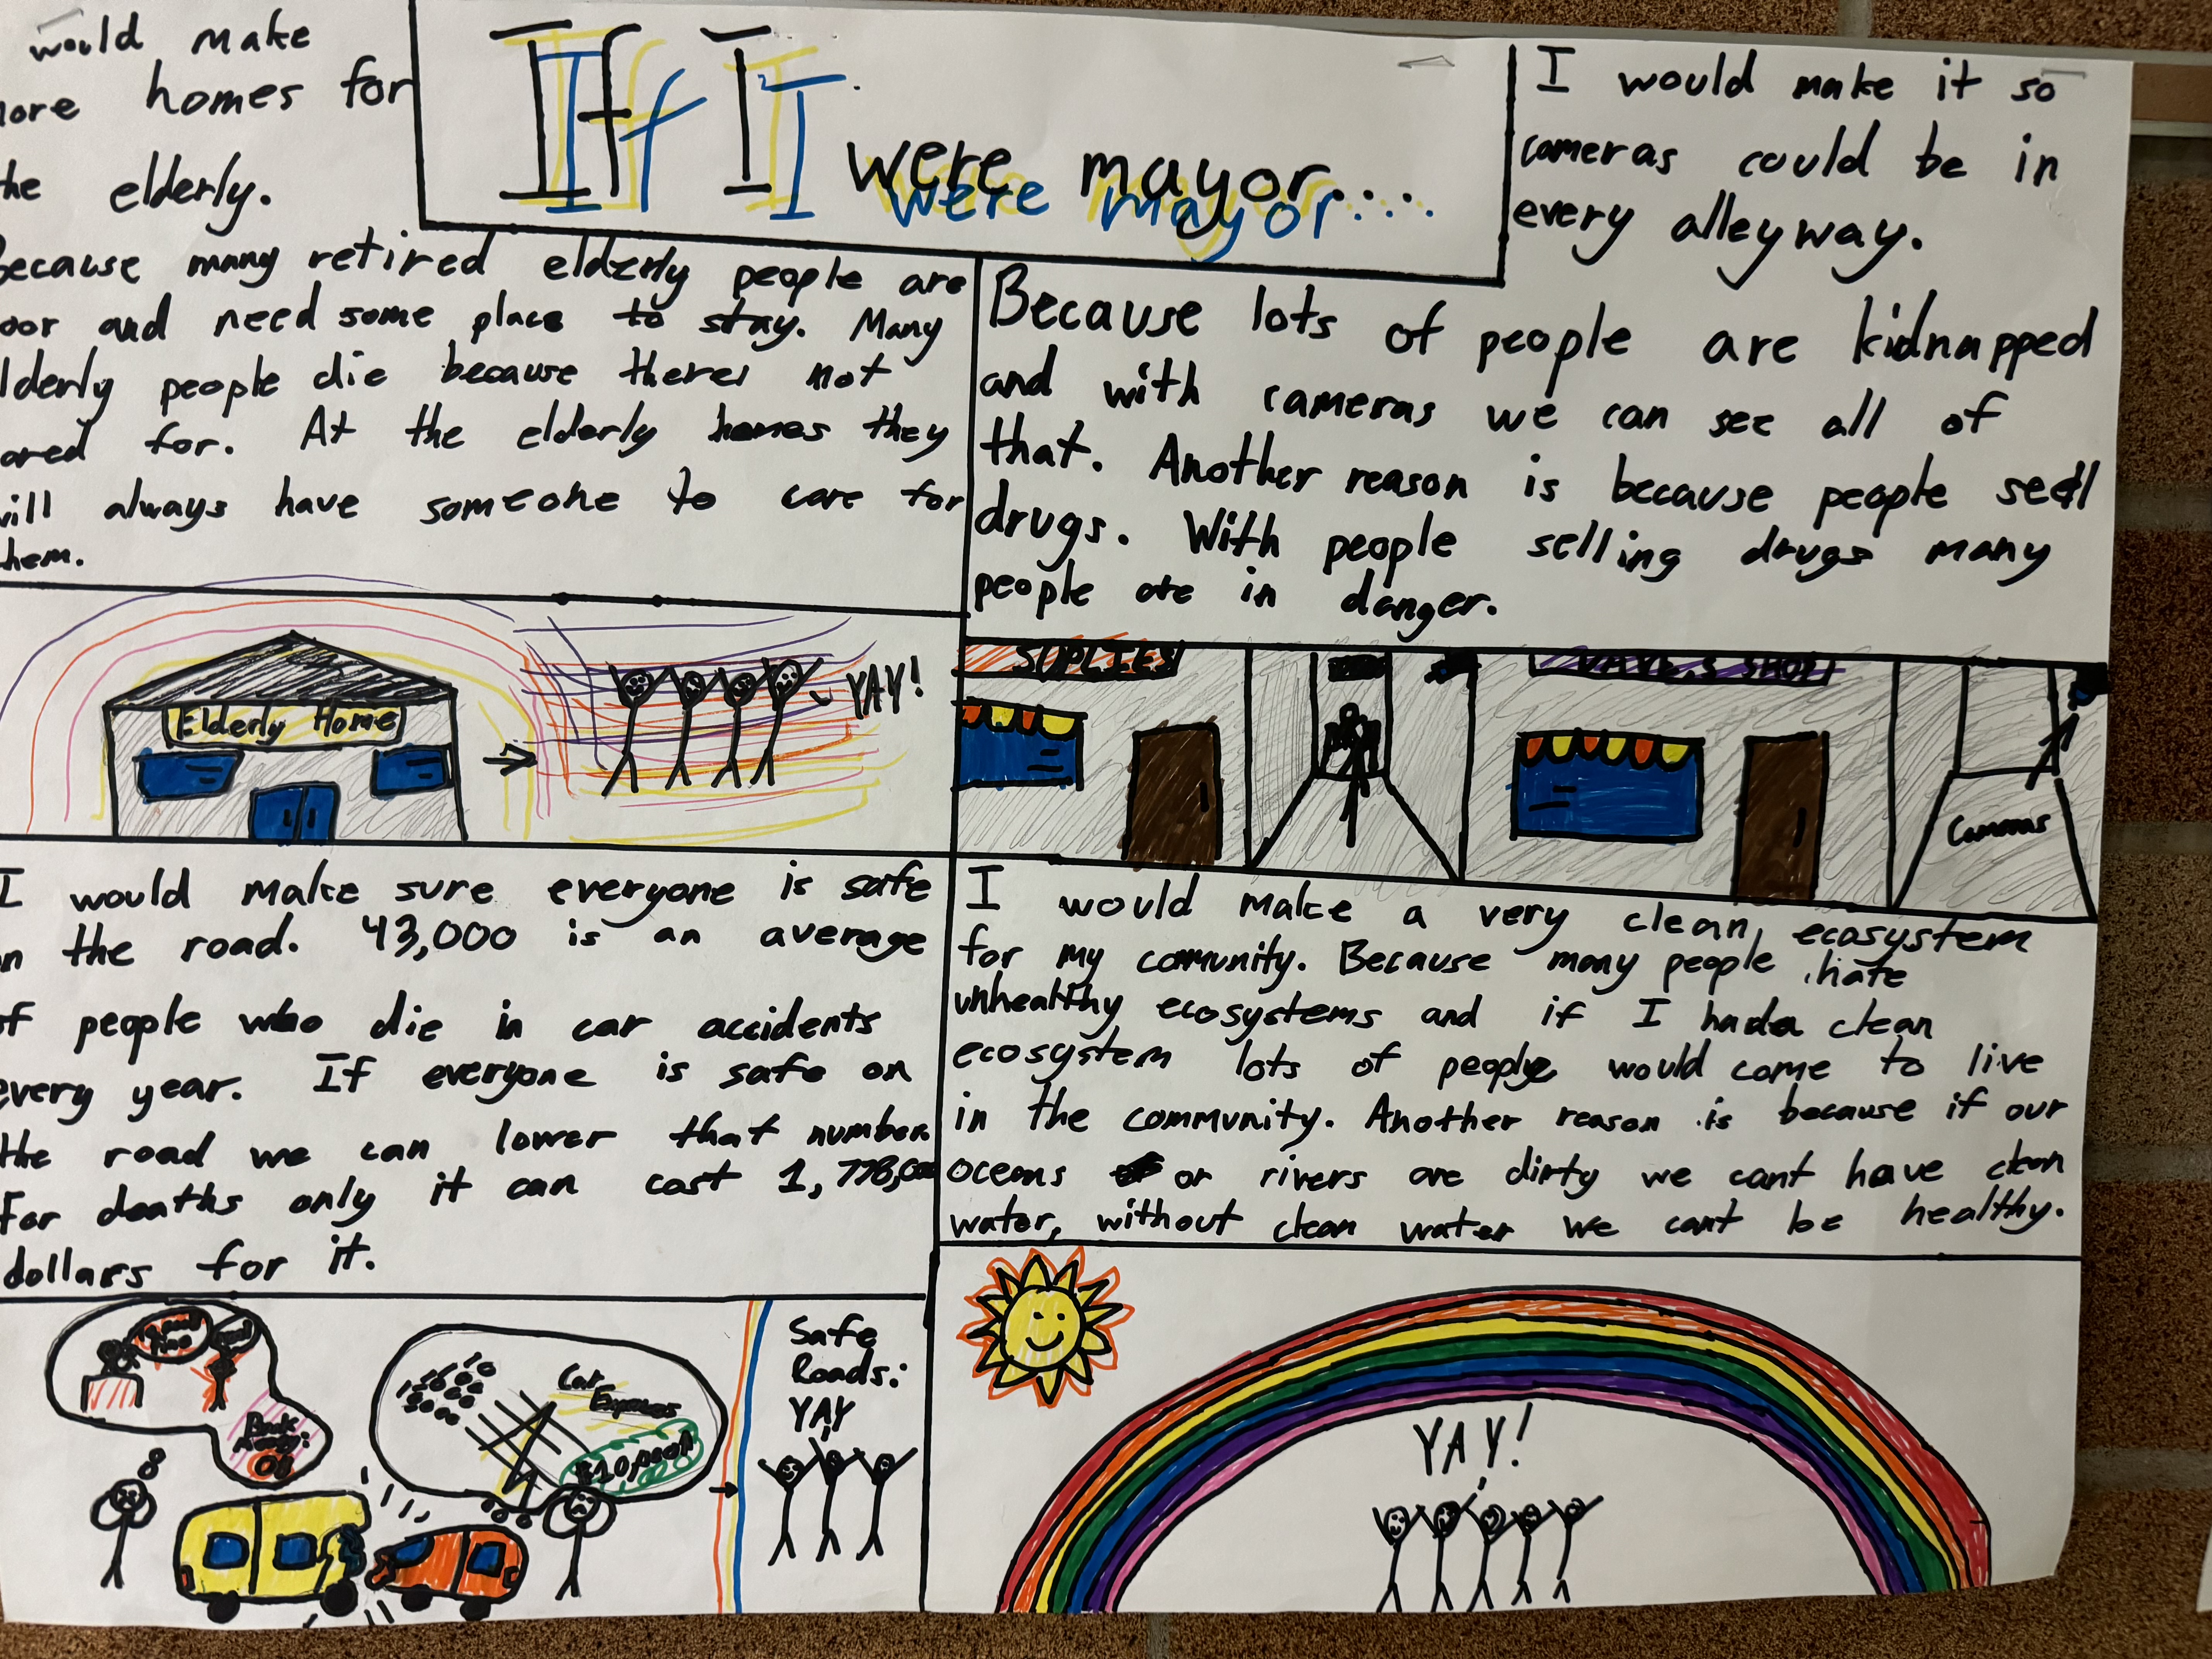 If I were mayor....
If I were mayor....
would make
homes for
elderly.
because many retired elderly people are
and need some place to stay. Many
people die because theres not
for. At the elderly homes they
always have someone to care for
Elderly Home
YAY!
I would make it so
cameras could be in
every alleyway.
Because lots of people are kidnapped
and with cameras we can see all of
that. Another reason is because people sell
drugs. With people selling drugs many
people are in danger.
SUPLIES
SHOP
Cameras
I would make sure everyone is safe
the road. 43,000 is an average
people who die in car accidents
every year. If everyone is safe on
the road we can lower that number.
For deaths only it can cost
dollars for it.
Car
Expenses
Safe
Roads:
YAY
I would make a very clean ecosystem
for my comunity. Because many people hate
unhealthy ecosystems and if I had a clean
ecosystem lots of people would come to live
in the community. Another reason is because if our
oceans or rivers are dirty we cant have clean
water, without clean water we cant be healthy.
YAY!